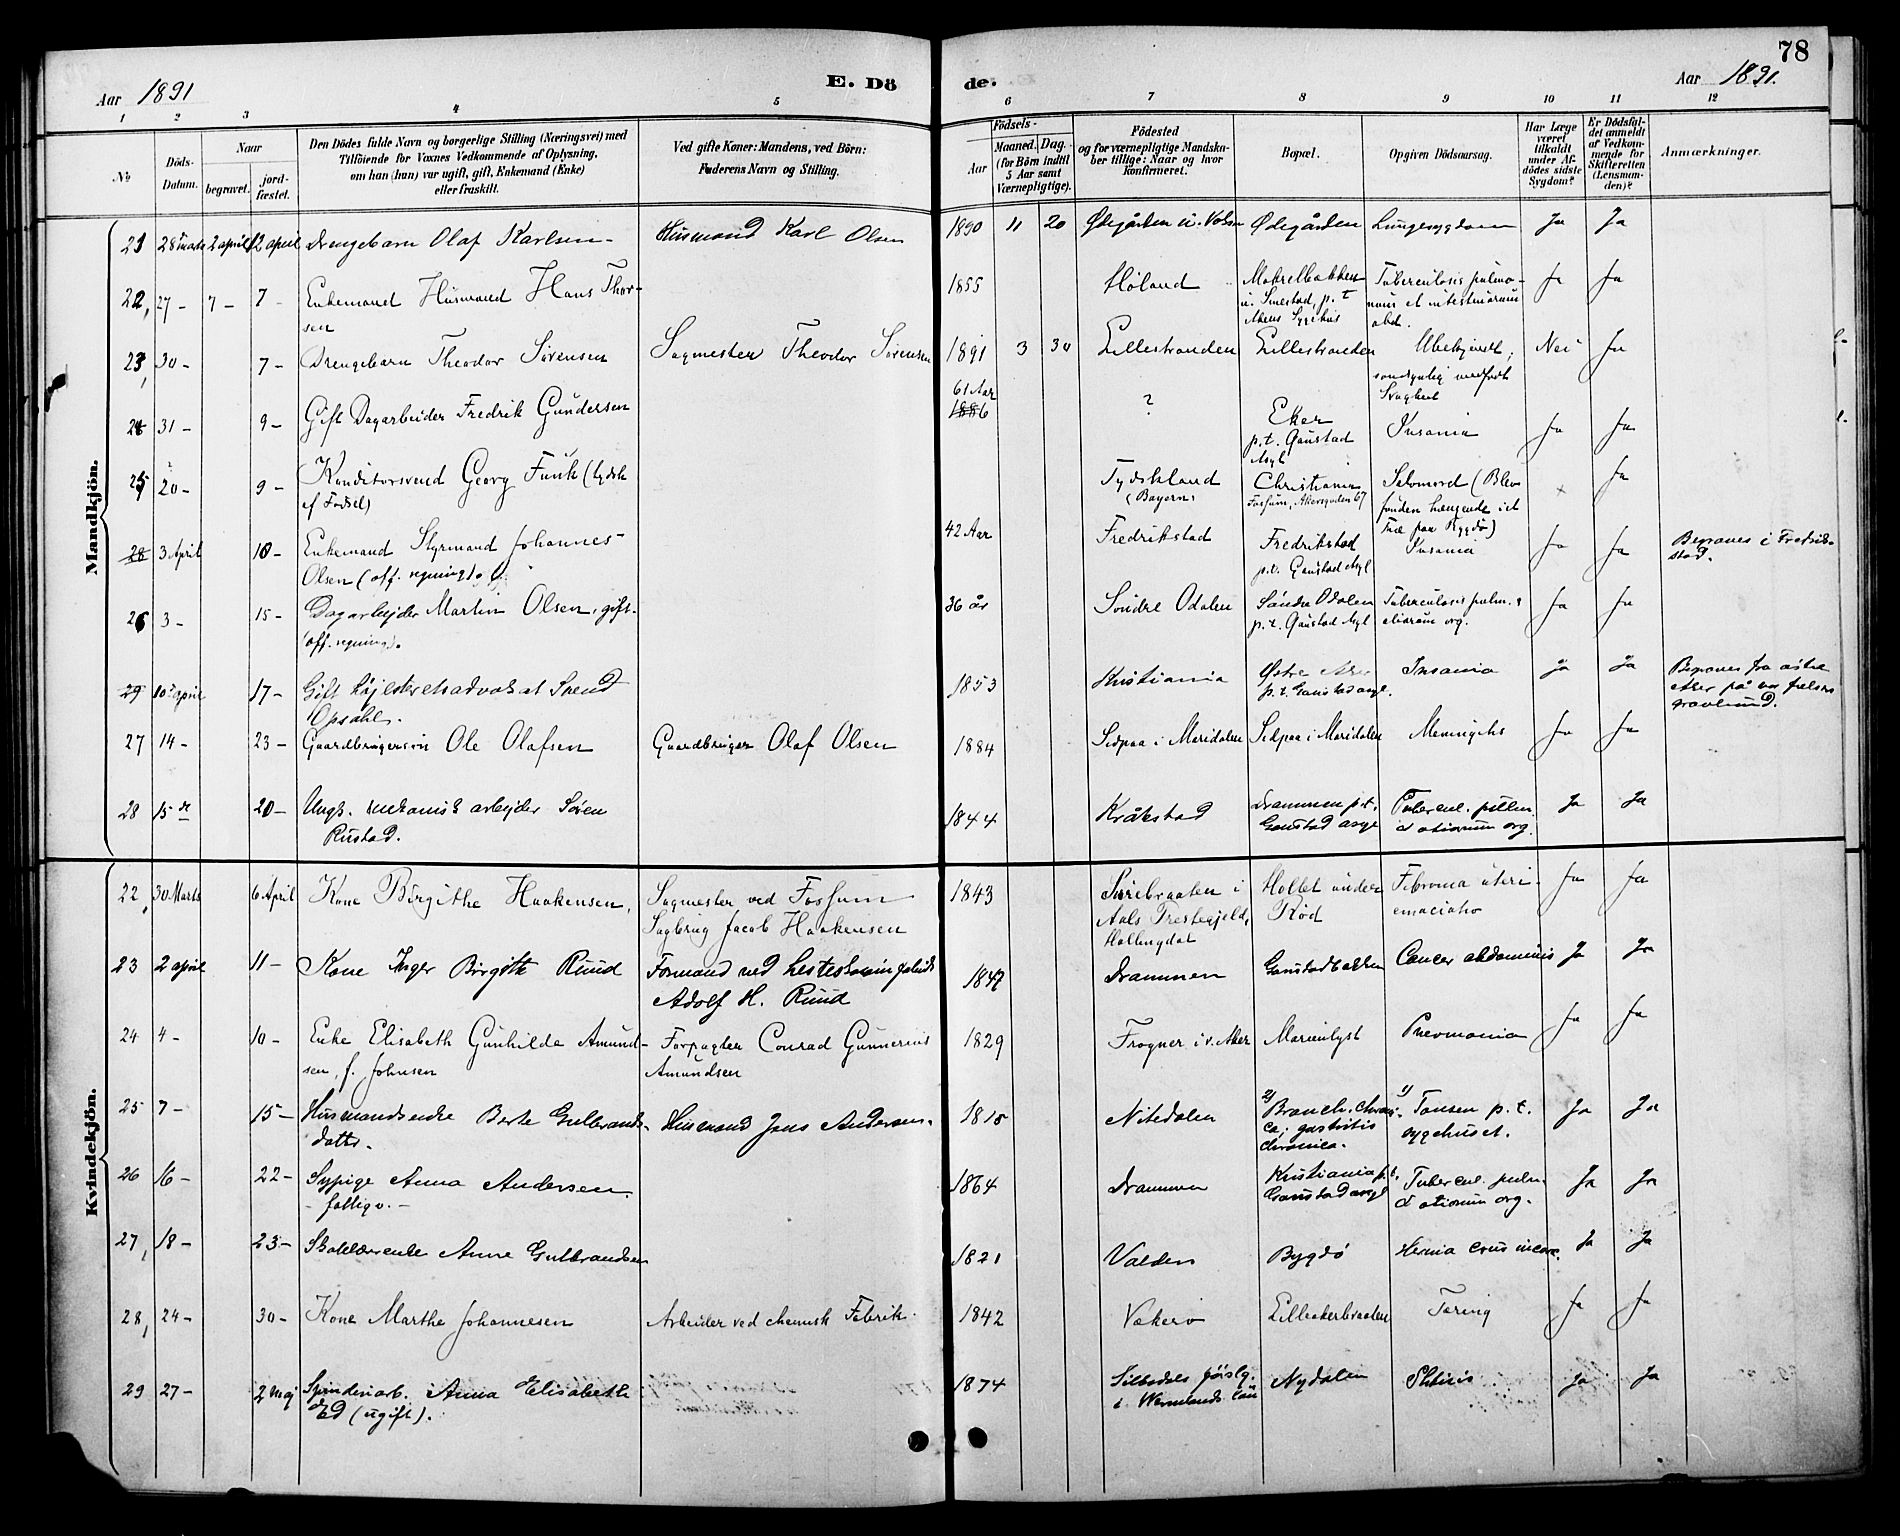 78
Aar 1891 E. Dö
de. Aar 1891.
1 2 3 4 5 6 7 8 9 10 11 12
No
Döds-
Datum.
Naar
begravet.
jord-
fæstet.
Den Dödes fulde Navn og borgerlige Stilling (Næringsvei) med
Tilföiende for Voxnes Vedkommende af Oplysning,
om han (hun) var ugift, gift, Enkemand (Enke)
eller fraskilt.
Ved gifte Koner: Mandens, ved Börn:
Faderens Navn og Stilling.
Födsels-
Aar
Maaned. Dag.
(for Börn indtil
5 Aar samt
Værnepligtige).
Födested
og for værnepligtige Mandska-
ber tillige: Naar og hvor
konfirmeret.
Bopæl.
Opgiven Dödsaarsag.
Har Læge
været
tilkaldt
under Af-
dödes sidste
Sygdom?
Er Dödsfal-
det anmeldt
af Vedkom-
mende for
Skifteretten
(Lensman-
den)?
Anmærkninger.
Mandkjön.
21 28 marts 2 april 12 april Drengebarn Olaf Karlsen Husmand Karl Olsen 1890 11 20 Ødegården u. Voksen Ødegården Lungesygdom Ja Ja
22, 27 - 7 - 7 - Enkemand Husmand Hans Thor-
sen 1855 Høland
u. Smestad, p. t. Tuberculosis pulmo-
num et intestinarum
Akers Sygehus abd. Ja Ja
23, 30 - 7 - Drengebarn Theodor Sørensen Sagmester Theodor Sørensen 1891 3 30 Lillestranden Lillestranden Ubekjendt,
sandsynlig medfødt
Svaghed Nei Ja
24 31 - 9 - Gift Dagarbeider Fredrik Gundersen 61 Aar
1886 ? Eker
p. t. Gaustad
Asyl Insania Ja Ja
25 20 - 9 - Konditorsvend Georg Funk (tydsk
af Fødsel) Tydskland
(Bayern) Christiania
Fossum, Akersgaden 67 Selvmord (Blev
funden hængende i et
Træ paa Bygdø) Ja
28 3 April 10 - Enkemand Styrmand Johannes
Olsen (off. regning) 42 Aar Fredrikstad Fredrikstad
p.t. Gaustad Asyl Insania Ja Ja Begraves i Fredrik-
stad.
26 3 - 15 - Dagarbejder Martin Olsen, gift.
(off. regning). 36 år Søndre Odalen Søndre Odalen
p. t. Gaustad Asyl Tuberculosis pulm. &
aliorum org. Ja Ja
29 10 april 17 - Gift Højesteretsadvokat Svend
Opsahl. 1853 Kristiania Østre Aker
p. t. Gaustad asyl. Insania Ja Ja Begraves fra østre
Aker på vor frelsers
gravlund.
27 14 - 23 - Gaardbrugersøn Ole Olafsen Gaardbruger Olaf Olsen 1884 Sidpaa i Maridalen Sidpaa i Maridalen Meningitis Ja Ja
28 15 de 20 - Ungk. mekanisk arbejder Søren
Rustad. 1844 Kråkstad Drammen p.t.
Gaustad asyl Tubercul. pulm.
et aliorum org. Ja Ja
Kvindekjön.
22, 30 Marts 6 April Kone Birgithe Haakensen, Sagmester ved Fossum
Sagbrug Jacob Haakensen 1843
Aals Prestegjeld,
Hallingdal Hollet under
Rød Fibroma uteri
emaciatio Ja Ja
23 2 april 11 - Kone Inger Birgitte Ruud Formand ved Hesteskosømfabrik
Adolf H. Ruud 1847 Drammen Gaustadbakken Cancer abdominis Ja Ja
24 4 - 10 - Enke Elisabeth Gunhilde Amund-
sen, f. Johnsen Forpagter Conrad Gunnerius
Amundsen 1829 Frogner i v. Aker Marienlyst Pneumonia Ja Ja
25 7 - 15 - Husmandsenke Berte Gulbrands-
datter. Husmand Jens Andersen. 1815 Nitedalen 2) Bronch. chroni-
ca; gastritis
chronica. 1) Tonsen p. t.
sygehuset. Ja Ja
26 16 - 22 - Sypige Anna Andersen.
- fattigv. - 1864 Drammen Kristiania p. t.
Gaustad asyl Tubercul. pulm.
et aliorum org. Ja Ja
27, 18 - 23 - Anne Gulbrandsen 1821 Valders Bygdø Hernia crus incarc. Ja Ja
28, 24 - 30 - Kone Marthe Johannesen Arbeider ved chemisk Fabrik. 1842 Vækerø Lilleakerbraaten Tæring Ja Ja
29 27 - 2 Maj Spinderiarb. Anna Elisabeth
Ed (ugift). 1874 Silbodes församlg.
i Wermlands län Nydalen Phtisis Ja Ja